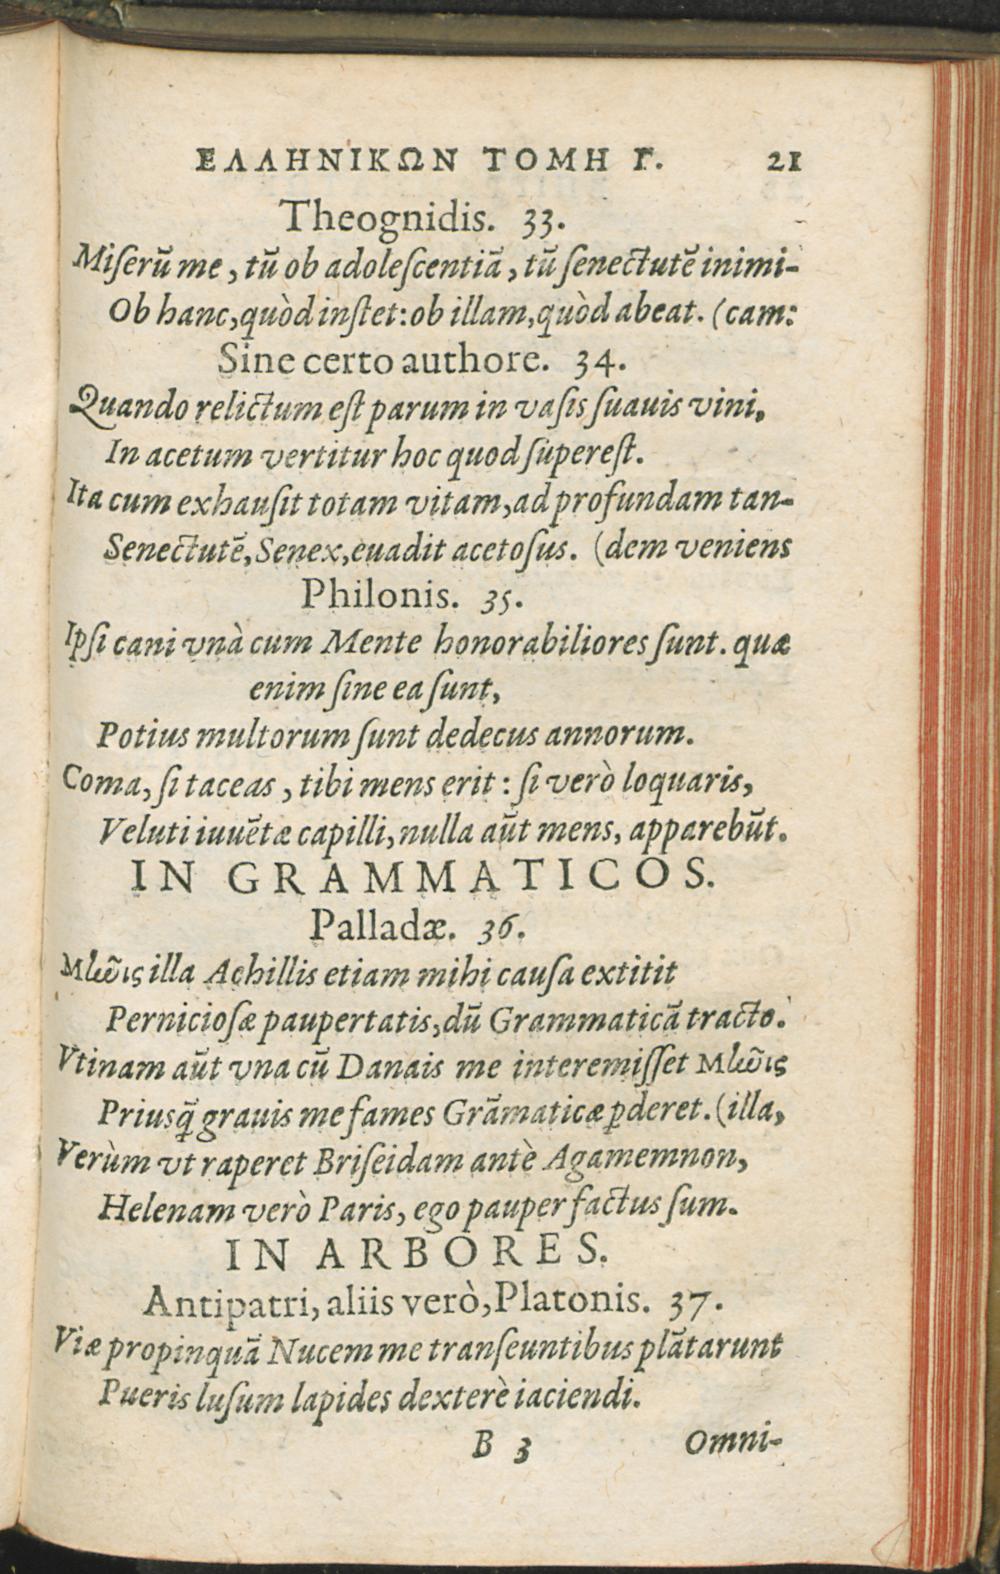 ΕΛΛΗΝΙΚΩΝ ΤΟΜΗ Γ. 21
Theognidis. 33.
Miſerũ me, tũ ob adoleſcentiã, tũ ſenectutẽ inimi-
Ob hanc, quòd inſtet: ob illam, quòd abeat. (cam:
Sine certo authore. 34.
Quando relictum eſt parum in vaſis ſuauis vini,
In acetum vertitur hoc quod ſupereſt.
Ita cum exhauſit totam vitam, ad profundam tan-
Senectutẽ, Senex, euadit acetoſus. (dem veniens
Philonis. 35.
Ipſi cani vnà cum Mente honorabiliores ſunt. quæ
enim ſine ea ſunt,
Potius multorum ſunt dedecus annorum.
Coma, ſi taceas, tibi mens erit: ſi verò loquaris,
Veluti iuuẽtæ capilli, nulla aũt mens, apparebũt.
IN GRAMMATICOS.
Palladæ. 36.
Μῆνις illa Achillis etiam mihi cauſa extitit
Pernicioſæ paupertatis, dũ Grammaticã tracto.
Vtinam aũt vna cũ Danais me interemiſſet Μῆνις
Priusq̃ grauis me fames Grãmaticæ ꝑderet. (illa,
Verùm vt raperet Briſeidam antè Agamemnon,
Helenam verò Paris, ego pauper factus ſum.
IN ARBORES.
Antipatri, aliis verò, Platonis. 37.
Viæ propinquã Nucem me tranſeuntibus plãtarunt
Pueris luſum lapides dexterè iaciendi.
B 3 Omni-